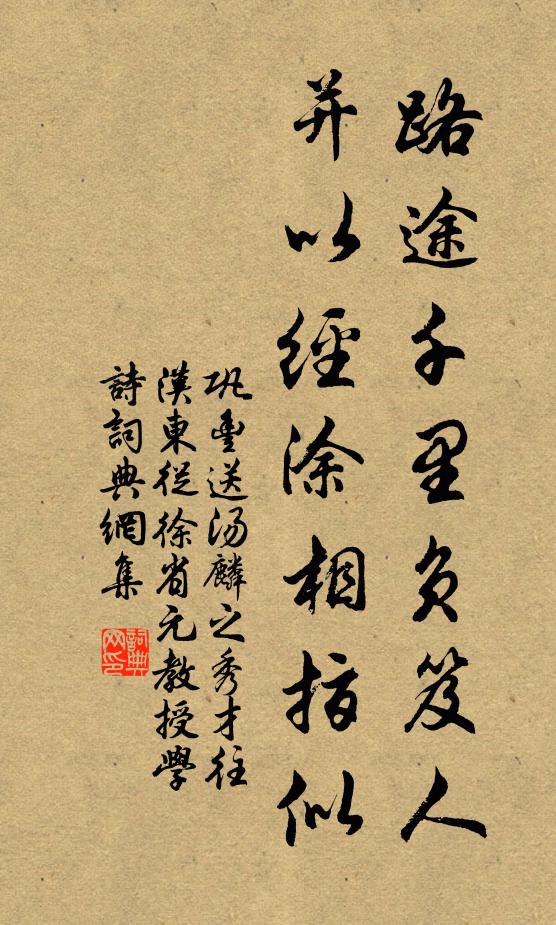 路途千里負笈人
并以經涂相指似
巩豐送湯麟之秀才往
漢東從徐省元教授學
詩詞典網集
詞典网印